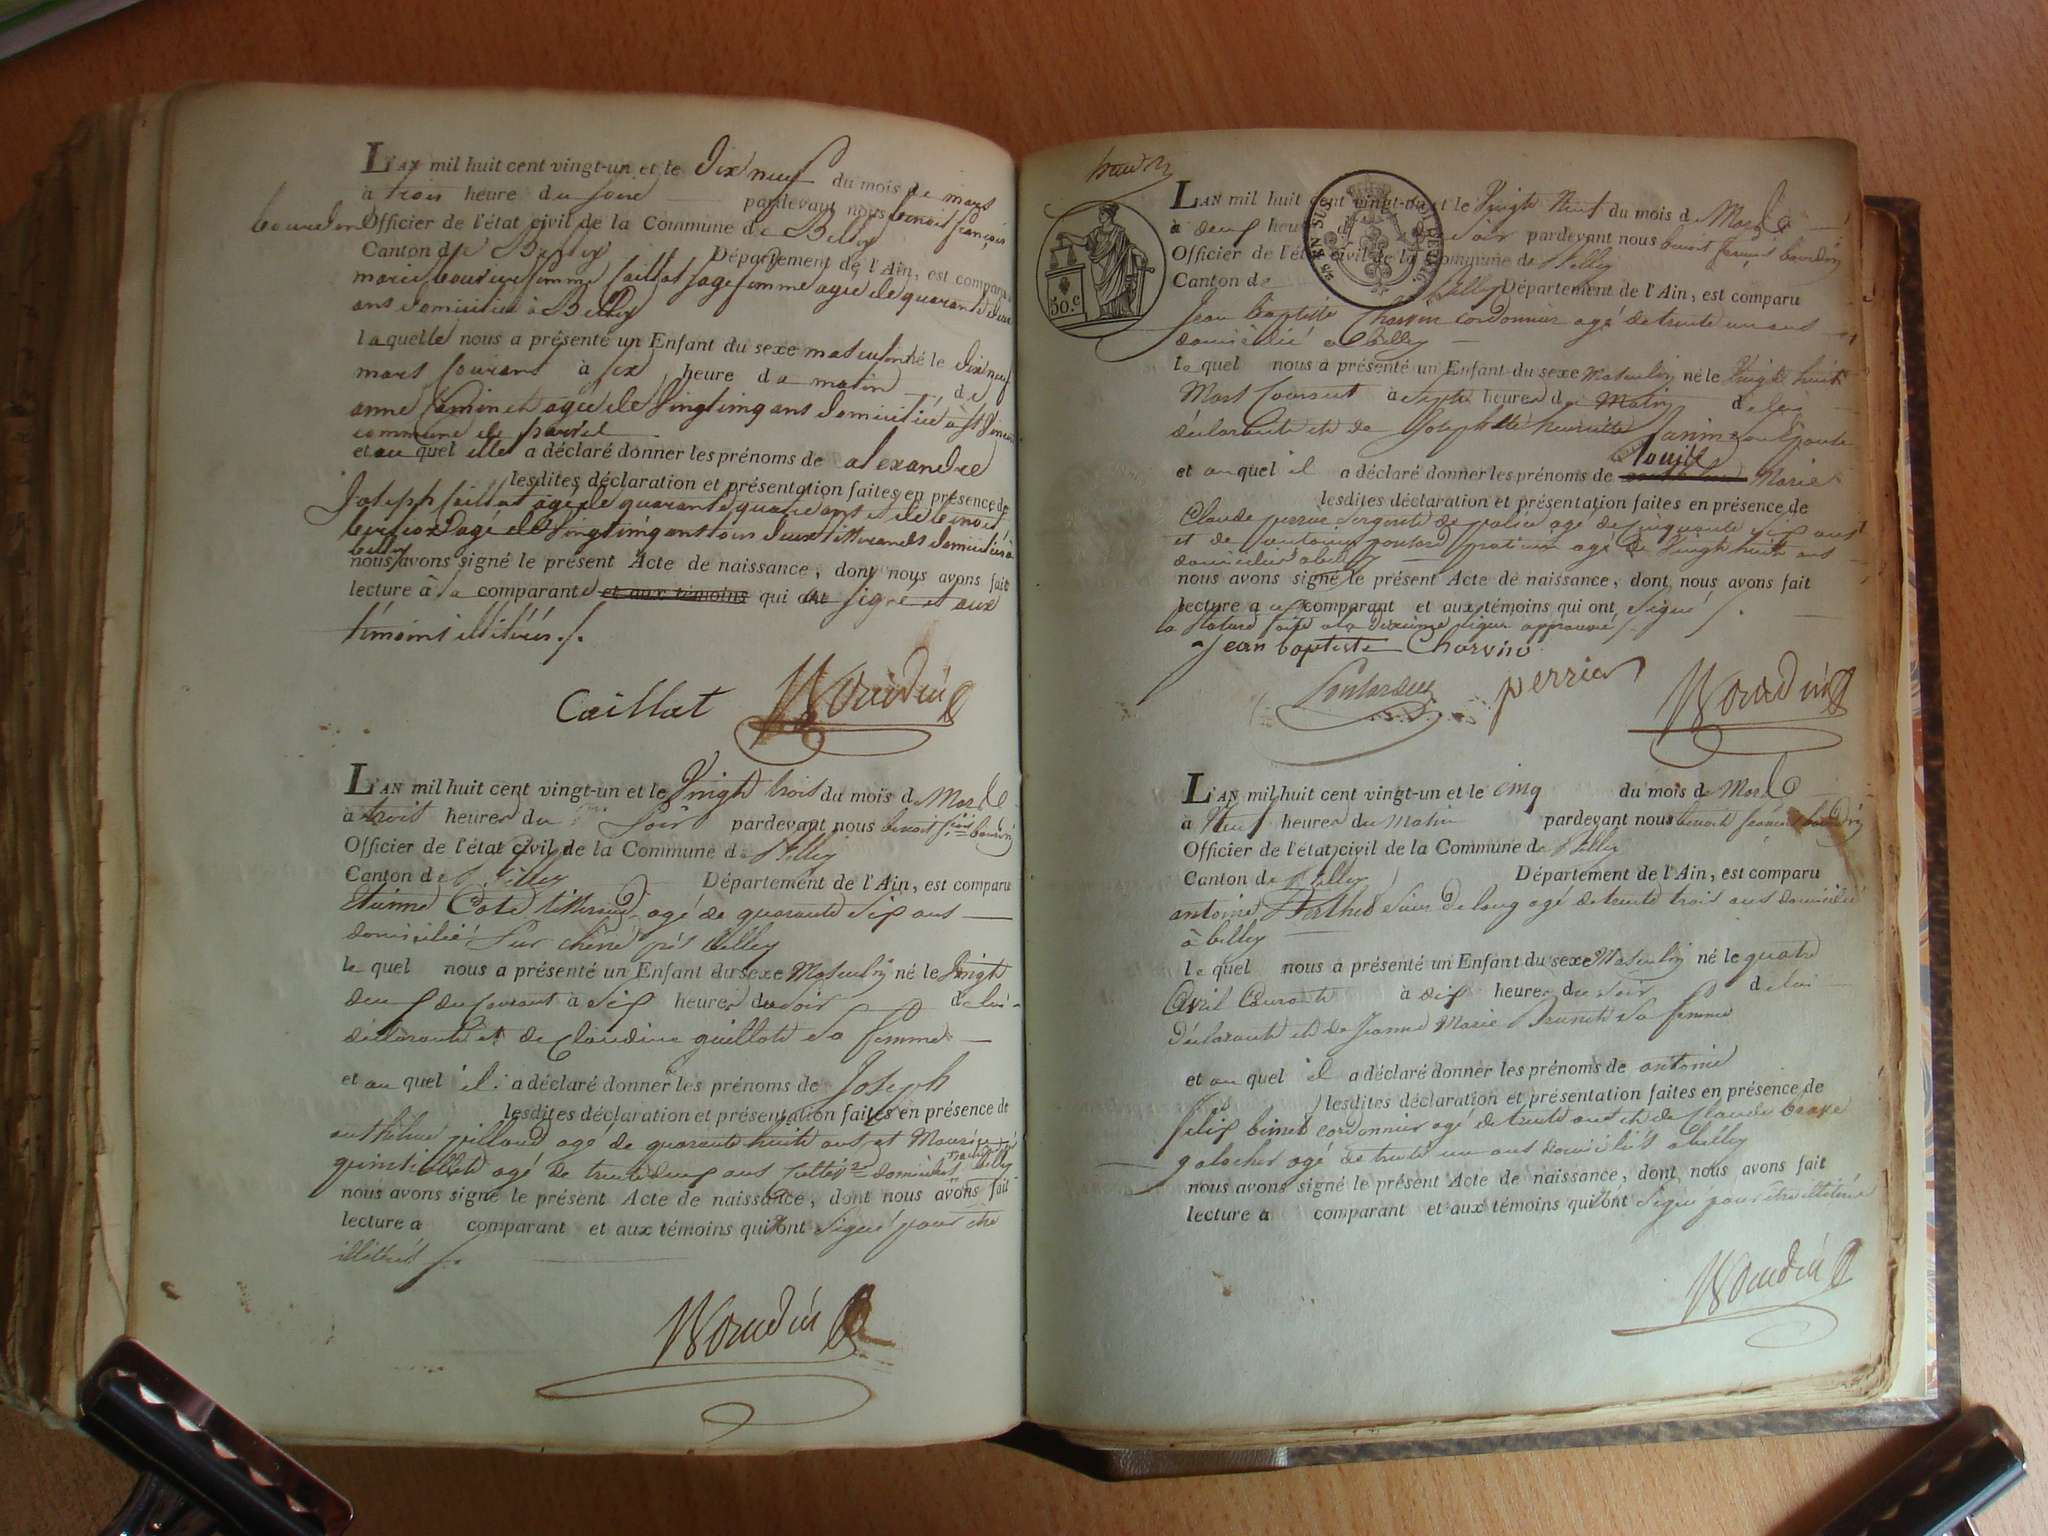 L'AN mil huit cent vingt-un et le dix neuf du mois de mars
à trois heure du soire pardevant nous benoit françois
bourdin Officier de l'état civil de la Commune de Belley
Canton de Belley Département de l'Ain, est comparu
marie femme Caillat sage femme agée de quarante deux
ans domiciliée à Belley
laquelle nous a présenté un Enfant du sexe masculin né le dix neuf
mars courant à six heure du matin de
anne agée de vingt cinq ans domiciliée à
commune de
et au quel elle a déclaré donner les prénoms de alexandre
lesdites déclaration et présentation faites en présence de
Joseph Caillat agé de quarante quatre ans et de benoit
agé de vingt cinq ans tous deux domiciliés à
belley
nous avons signé le présent Acte de naissance, dont nous avons fait
lecture à la comparante et aux témoins qui a signé et aux
témoins illitérés ./.
Caillat Bourdin
L'AN mil huit cent vingt-un et le vingt trois du mois de Mars
à trois heures du soir pardevant nous benoit fçois bourdin
Officier de l'état civil de la Commune de Belley
Canton de Belley Département de l'Ain, est comparu
Etienne Cote agé de quarante six ans
domicilié sur chêne près belley
le quel nous a présenté un Enfant du sexe Masculin né le vingt
deux du courant à six heures du soir de lui
déclarant et de Claudine guillot sa femme
et au quel il a déclaré donner les prénoms de Joseph
lesdites déclaration et présentation faites en présence de
anthelme billoud agé de quarante huit ans et Maurice
agé de trente deux ans domiciliés belley
nous avons signé le présent Acte de naissance, dont nous avons fait
lecture a comparant et aux témoins qui n'ont signé pour être
illitérés ./.
Bourdin
bourdin
L'AN mil huit cent vingt-un et le vingt neuf du mois de Mars
à deux heures soir pardevant nous benoit françois bourdin
Officier de l'état civil de la Commune de Belley
Canton de Belley Département de l'Ain, est comparu
50.c
Jean baptiste Charvin cordonnier agé de trente un ans
domicilié a belley
le quel nous a présenté un Enfant du sexe Masculin né le vingt huit
Mars courant à sept heures du Matin de lui
déclarant et de Josephte henriette Janin son Epouse
et au quel il a déclaré donner les prénoms de Louis Marie
lesdites déclaration et présentation faites en présence de
Claude perrier sergent de police agé de cinquante six ans
et de antoine praticien agé de vingt huit ans
domiciliés a belley
nous avons signé le présent Acte de naissance, dont nous avons fait
lecture a ce comparant et aux témoins qui ont signé ./.
la Rature faite a la dixième ligne approuvé
Jean baptiste Charvin
perrier Bourdin
L'AN mil huit cent vingt-un et le cinq du mois de
à Neuf heures du Matin pardevant nous benoit françois bourdin
Officier de l'état civil de la Commune de Belley
Canton de Belley Département de l'Ain, est comparu
antoine Berthet sieur de long agé de trente trois ans domicilié
à belley
le quel nous a présenté un Enfant du sexe Masculin né le quatre
Avril Courant à six heures du soir de lui
déclarant et de Jeanne Marie Brunet sa femme
et au quel il a déclaré donner les prénoms de antoine
lesdites déclaration et présentation faites en présence de
felix binet cordonnier agé de trente ans et de Claude
galocher agé de trente un ans domiciliés a belley
nous avons signé le présent Acte de naissance, dont nous avons fait
lecture a comparant et aux témoins qui n'ont signé pour être illitérés
Bourdin